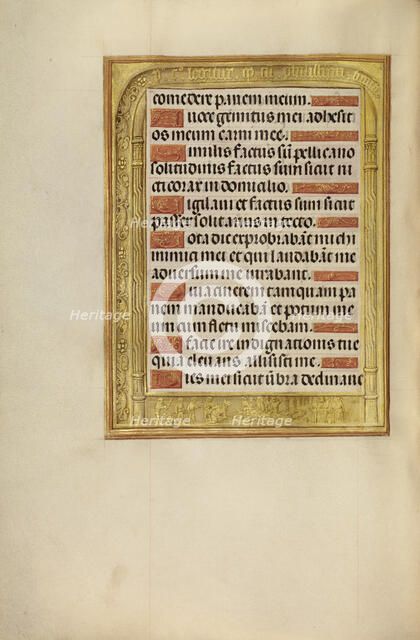 comedere panem meum.
A uoce gemitus mei adhesit
os meum carni mee.
Similis factus sū pellicano
solitudinis factus sum sicut ni
cticorax in domicilio.
Vigilaui et factus sum sicut
passer solitarius in tecto.
Tota die exprobrabāt michi
inimici mei et qui laudabāt me
aduersum me iurabant.
Quia cinerem tamquam pa
nem manducabā et potum me
um cum fletu miscebam.
A facie ire indignationis tue
quia eleuans allisisti me.
Dies mei sicut ūbra declinaue
Heritage
Heritage
Heritage
Heritage